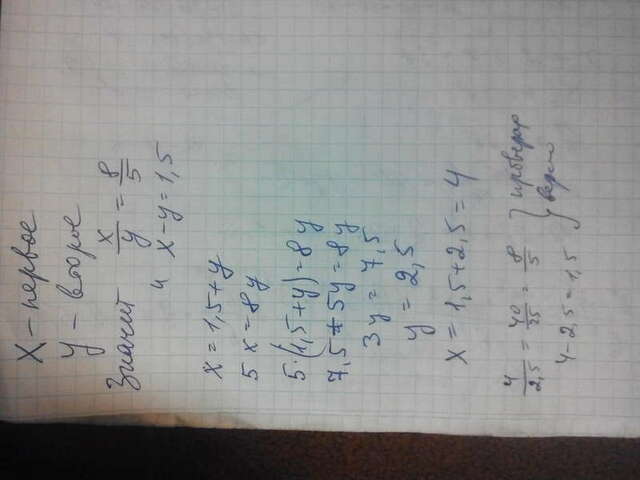 X - первое
y - второе
Значит x/y = 8/5
и x - y = 1,5
x = 1,5 + y
5x = 8y
5·(1,5 + y) = 8y
7,5 + 5y = 8y
3y = 7,5
y = 2,5
x = 1,5 + 2,5 = 4
4/2,5 = 40/25 = 8/5
4 - 2,5 = 1,5
} верно